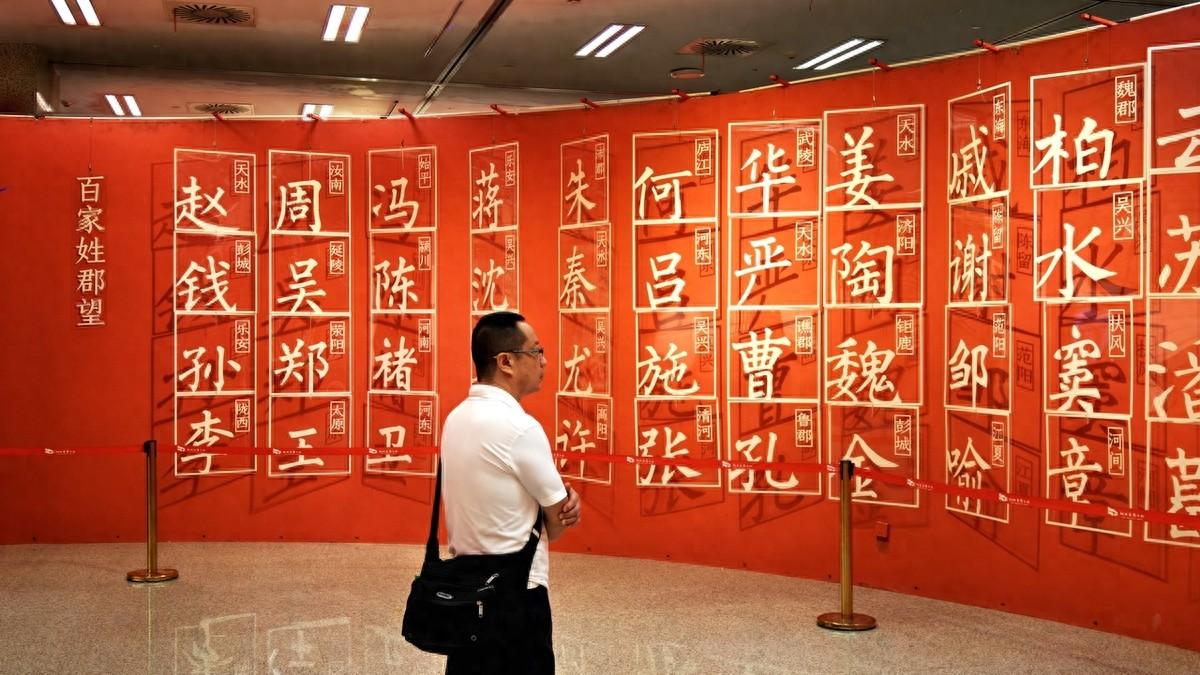 百家姓郡望
赵 天水
钱 彭城
孙 乐安
李 陇西
周 汝南
吴 延陵
郑 荥阳
王 太原
冯 始平
陈 颍川
褚 河南
卫 河东
蒋 乐安
沈 吴兴
朱 沛郡
秦 天水
尤 吴兴
许 高阳
何 庐江
吕 河东
施 吴兴
张 清河
华 武陵
严 天水
曹 谯郡
孔 鲁郡
姜 天水
陶 济阳
魏 钜鹿
金 彭城
戚 东海
谢 陈留
邹 范阳
喻 江夏
柏 魏郡
水 吴兴
窦 扶风
章 河间